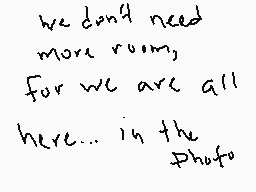 we don't need
more room,
for we are all
here... in the
photo